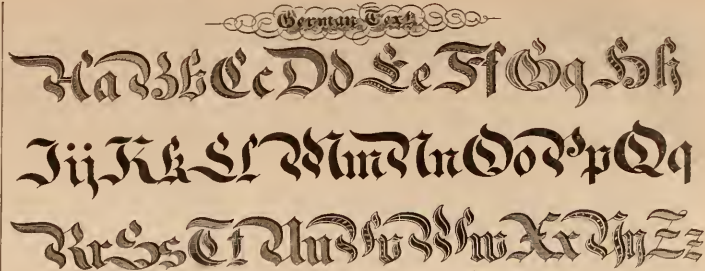 German Text.
AaBbCcDdEeFfGgHh
IijKkLlMmNnOoPpQq
RrSsTtUuVvWwXxYyZz